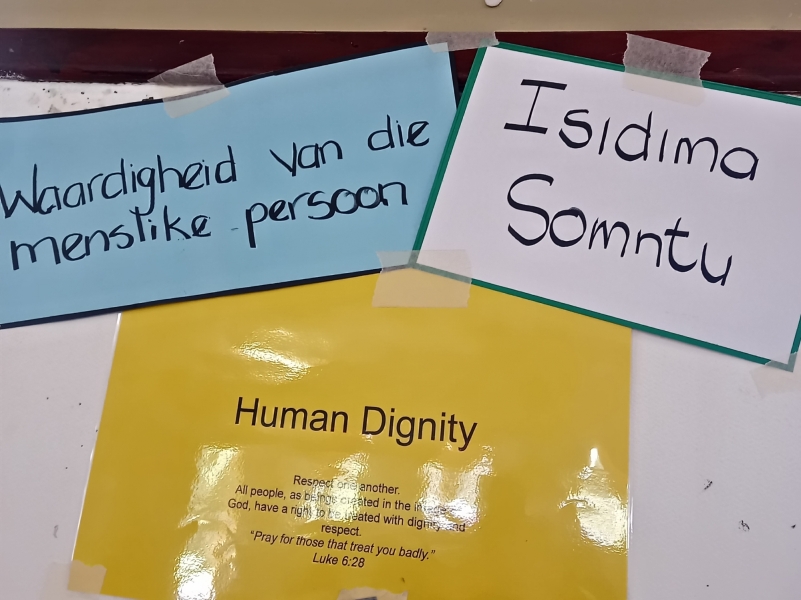 Waardigheid van die
menslike persoon
Isidima
Somntu
Human Dignity
Respect one another.
All people, as beings created in the image
God, have a right to be treated with dignity and
respect.
"Pray for those that treat you badly."
Luke 6:28